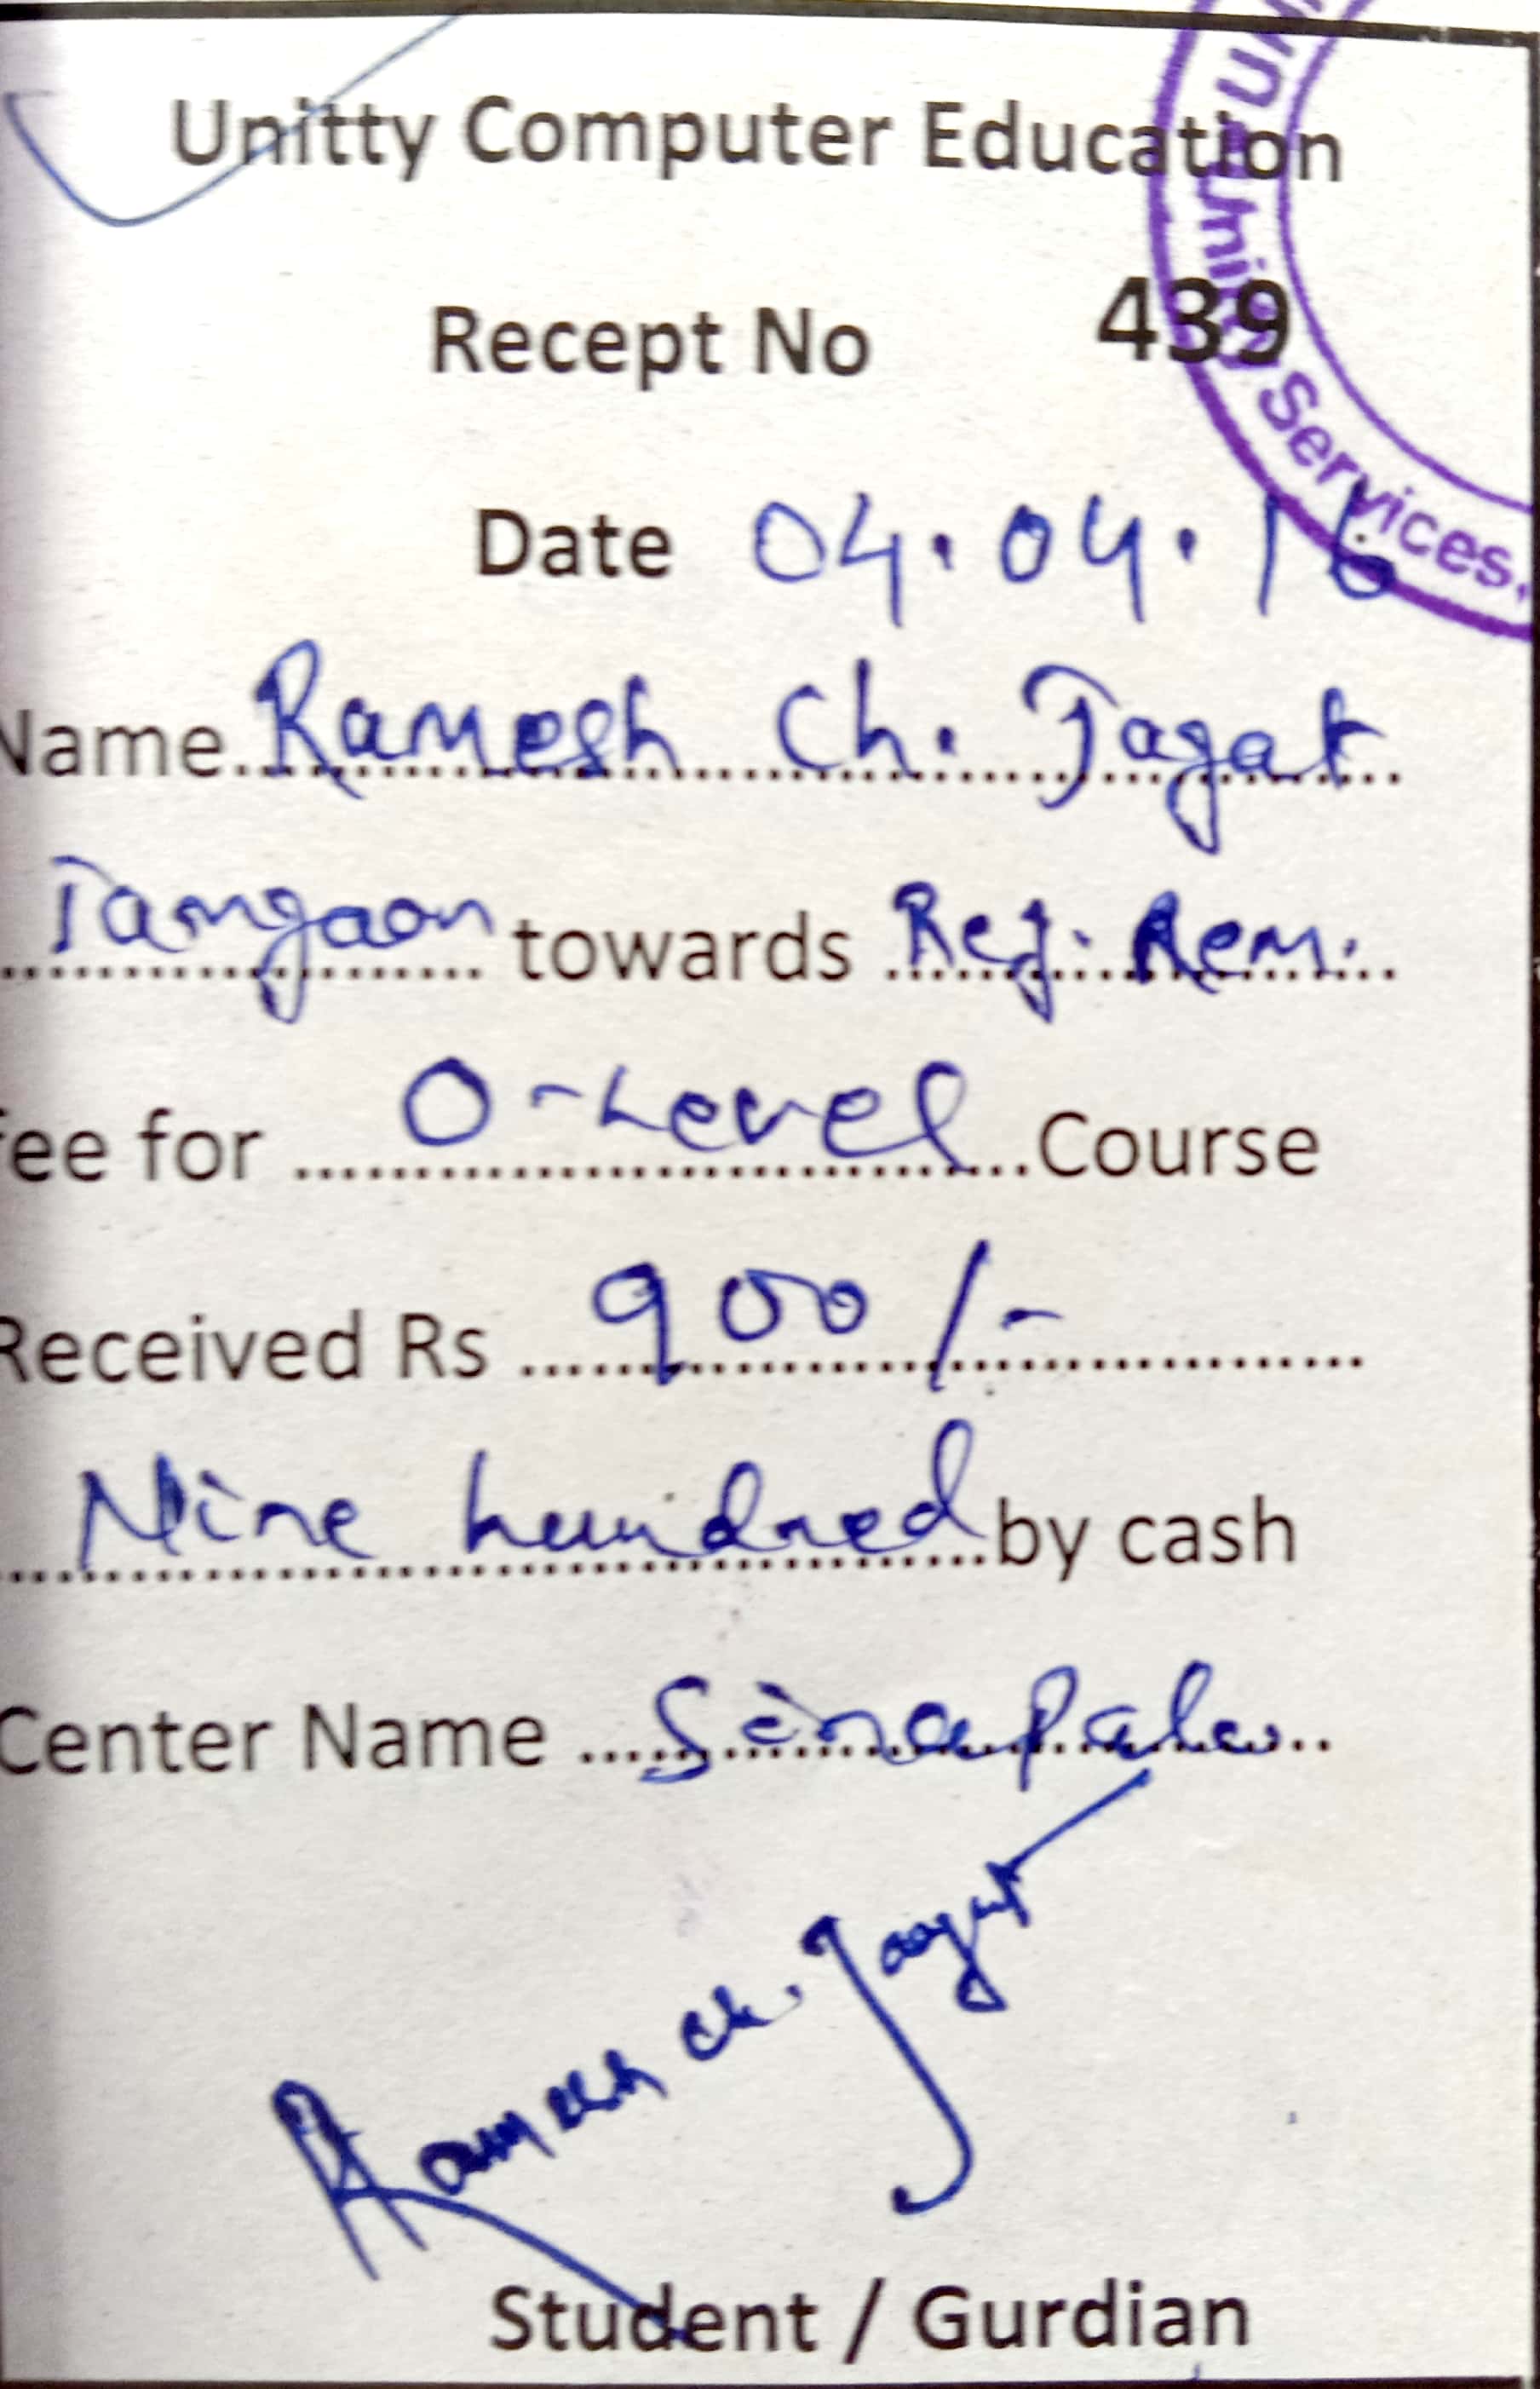 Unitty Computer Education
Recept No 439
Date 04.04.16
Name Ramesh Ch. Jagat
Tamgaon towards Reg. Rem.
fee for O-Level Course
Received Rs 900/-
Nine hundred by cash
Center Name Sinapali
Ramesh ch. Jagat
Student / Gurdian
Services.